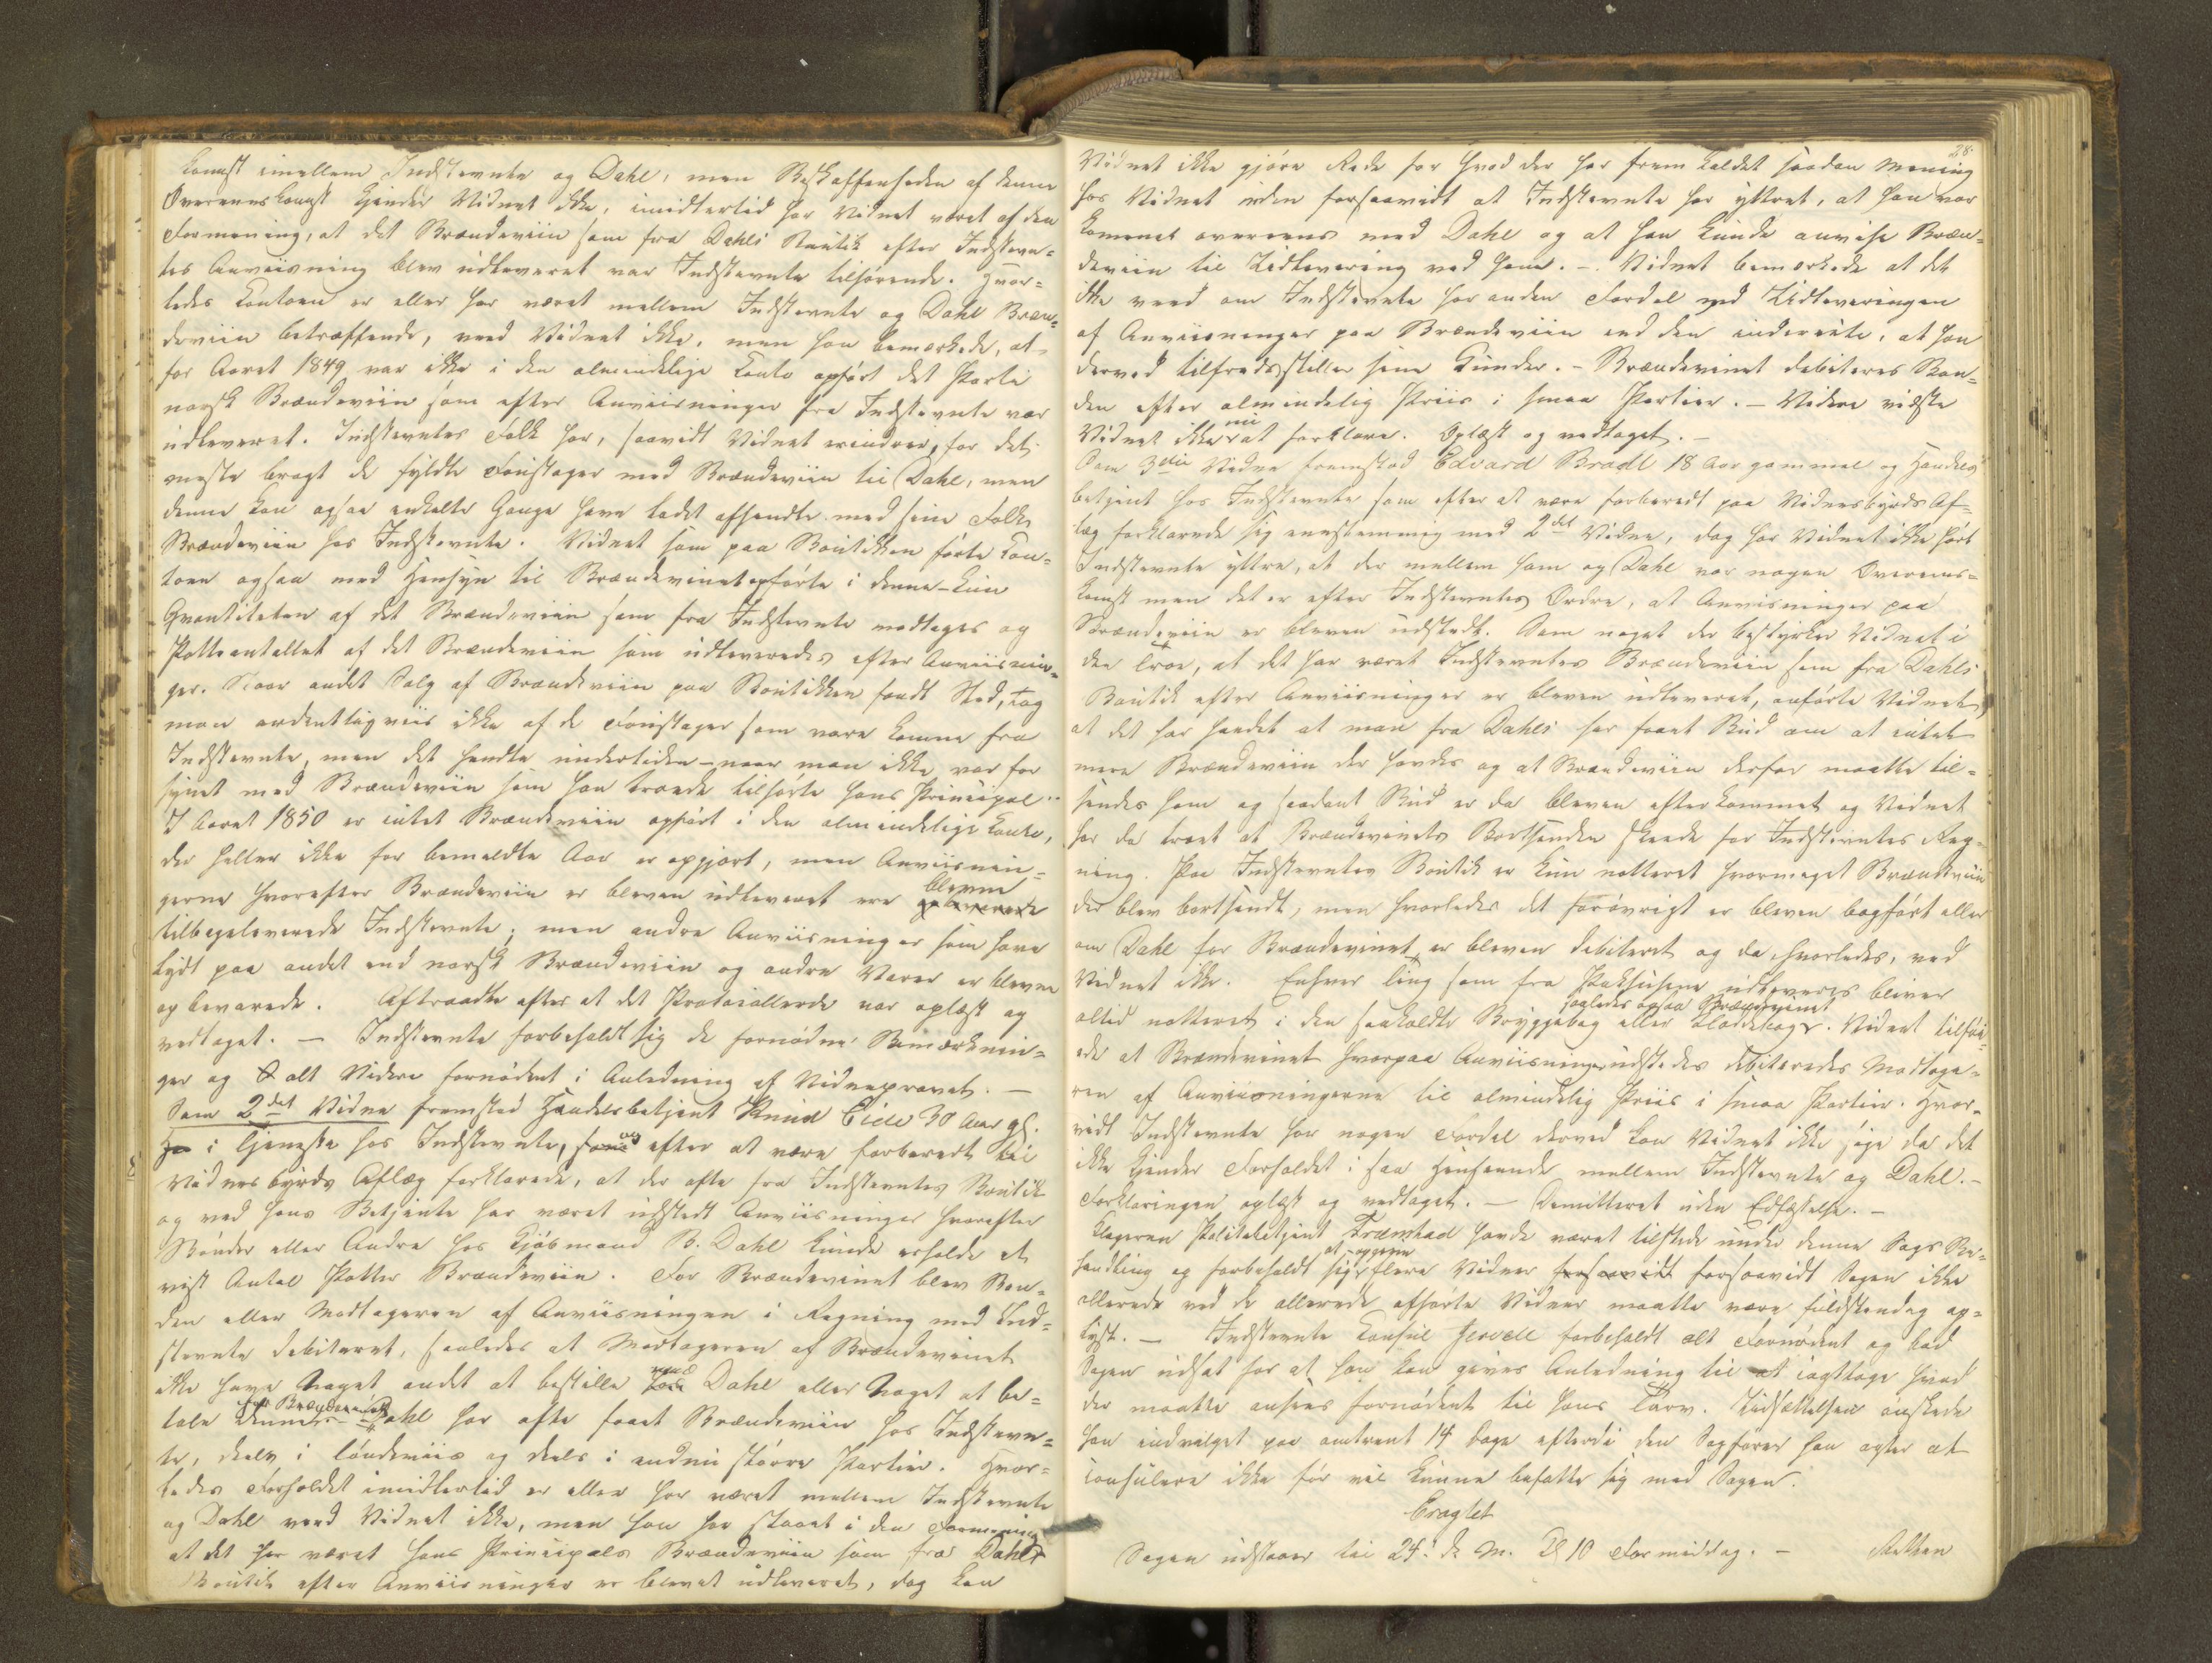 komst imellem Indstevnte og Dahl, men Beskaffenheden af denne
Overeenskomst kjender Vidnet ikke, imidlertid har Vidnet været af den
Formening, at det Brændeviin som fra Dahls Boutik efter Indstevn=
tes Anviisning blev udleveret var Indstevnte tilhørende. Hvor=
ledes Contoen er eller har været mellem Indstevnte og Dahl Bræn=
deviin betræffende, veed Vidnet ikke, men han bemærkede, at
for Aaret 1849 var ikke i den almindelige Conto opført det Parti
norsk Brændeviin som efter Anviisninger fra Indstevnte var
udleveret. Indstevntes Folk har, saavidt Vidnet erindrer, for det
meste bragt de fyldte Foustager med Brændeviin til Dahl, men
denne kan ogsaa enkelte Gange have ladet afhendte med sine Folk
Brændeviin hos Indstevnte. Vidnet som paa Boutikken førte Con=
toen ogsaa med Hensyn til Brændevinet opførte i denne kun
Qvantiteten af det Brændeviin som fra Indstevnte modtoges og
Potteantallet af det Brændeviin som udleveredes efter Anviisnin=
ger. Naar andet Salg af Brændeviin paa Boutikken fandt Sted, tog
man ordentligviis ikke af de Foustager som vare komne fra
Indstevnte, men det hendte undertiden naar man ikke var for
synet med Brændeviin som han troede tilhørte hans Principal.
I Aaret 1850 er intet Brændeviin opført i den almindelige Conto,
der heller ikke for bemeldte Aar er opgjort, men Anviisnin=
gerne hvorefter Brændeviin er bleven udleveret ere bleven
tilbageleverede Indstevnte; men andre Anviisninger som have
lydt paa andet end norsk Brændeviin og andre Varer er blevne
opbevarede. Aftraadte efter at det Protocollerede var oplæst og
vedtaget. – Indstevnte forbeholdt sig de fornødne Bemærknin=
ger og alt Videre fornødent i Anledning af Vidneprovet. –
Som 2det Vidne fremstod Handelsbetjent Knud Eide 30 Aar gl.
i Tjeneste hos Indstevnte, og efter at være forberedt til
Vidnesbyrds Aflæg forklarede, at der ofte fra Indstevntes Boutik
og ved hans Betjente har været udstedt Anviisninger hvorefter
Bønder eller Andre hos Kjøbmand B. Dahl kunde erholde et
vist Antal Potter Brændeviin. For Brændevinet blev Bon=
den eller Modtageren af Anviisningen i Regning med Ind=
stevnte debiteret, saaledes at Modtageren af Brændevinet
ikke have Noget andet at bestille med Dahl eller Noget at be=
tale for Brændevinet. Dahl har ofte faaet Brændeviin hos Indstevn=
te, deels i Tøndeviis og deels i endnu større Partier. Hvor=
ledes Forholdet imidlertid er eller har været mellem Indstevnte
og Dahl veed Vidnet ikke, men han har staaet i den Formening
at det har været hans Principals Brændeviin som fra Dahls
Boutik efter Anviisninger er blevet udleveret, dog kan
28.
Vidnet ikke gjøre Rede for hvad der har fremkaldet saadan Mening
hos Vidnet uden forsaavidt at Indstevnte har yttret, at han var
kommet overeens med Dahl og at han kunde anvise Bræn=
deviin til Udlevering ved ham. – Vidnet bemærkede at det
ikke veed om Indstevnte har anden Fordel ved Udleveringen
af Anviisninger paa Brændeviin end den indirecte, at han
derved tilfredsstiller sine Kunder. – Brændevinet debiteres Bon=
den efter almindelig Priis i smaa Partier. – Videre vidste
Vidnet ikke nu at forklare. Oplæst og vedtaget. –
Som 3die Vidne fremstod Edvard Bradt 18 Aar gammel og Handels
betjent hos Indstevnte som efter at være forberedt paa Vidnesbyrds Af=
læg forklarede sig eenstemmig med 2det Vidne, dog har Vidnet ikke hørt
Indstevnte yttre, at der mellem ham og Dahl var nogen Overeens=
komst men det er efter Indstevntes Ordre, at Anviisninger paa
Brændeviin er bleven udstedt. Som noget der bestyrker Vidnet i
den Troe, at det har været Indstevntes Brændeviin som fra Dahls
Boutik efter Anviisninger er bleven udleveret, anførte Vidnet,
at det har hendet at man fra Dahls har faaet Bud om at intet
mere Brændeviin der havdes og at Brændeviin derfor maatte til=
sendes ham og saadant Bud er da bleven efterkommet og Vidnet
har da troet at Brændevinets Bortsenden skeede for Indstevntes Reg=
ning. Paa Indstevntes Boutik er kun notteret hvormeget Brændeviin
der blev bortsendt, men hvorledes det forøvrigt er bleven bogført eller
om Dahl for Brændevinet er bleven debiteret og da hvorledes, ved
Vidnet ikke. Enhver Ting som fra Pakhusene udleveres bliver
altid notteret i den saakaldte Bryggebog eller Kladdebog, saaledes ogsaa Brændevinet. Vidnet tilføi=
ede at Brændevinet hvorpaa Anviisninger udstedes debiteredes Modtage=
ren af Anviisningerne til almindelig Priis i smaa Partier. Hvor=
vidt Indstevnte har nogen Fordel derved kan Vidnet ikke sige da det
ikke kjender Forholdet i saa Henseende mellem Indstevnte og Dahl. –
Forklaringen oplæst og vedtaget. – Demitteret uden Edfæstelse. –
Klageren Politibetjent Træmhad havde været tilstede under denne Sags Be=
handling og forbeholdt sig at opgive flere Vidner forsaavidt Sagen ikke
allerede ved de allerede afhørte Vidner maatte være fuldstændig op=
lyst. – Indstevnte Consul Jervell forbeholdt alt Fornødent og bad
Sagen udsat for at han kan gives Anledning til at iagttage hvad
der maatte ansees fornødent til hans Tarv. Udsættelsen ønskede
han indvilget paa omtrent 14 Dage efterdi den Sagfører han agter at
consulere ikke før vil kunne befatte sig med Sagen.
Eragtet
Sagen udstaaer til 24de d. M. Kl 10 Formiddag. – Retten